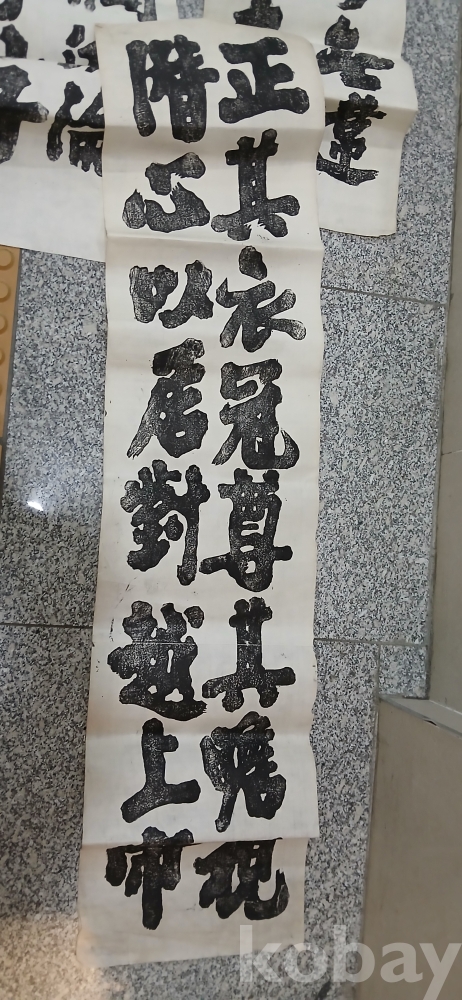 正其衣冠尊其瞻視
潛心以居對越上帝
kobay